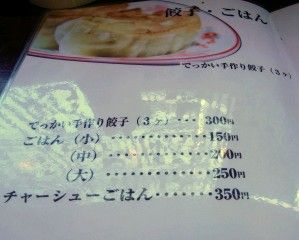 餃子・ごはん
でっかい手作り餃子（３ヶ）
でっかい手作り餃子（３ヶ）・・・・300円
ごはん（小）・・・・・・・・・・150円
（中）・・・・・・・・・・200円
（大）・・・・・・・・・・250円
チャーシューごはん・・・・・・・350円